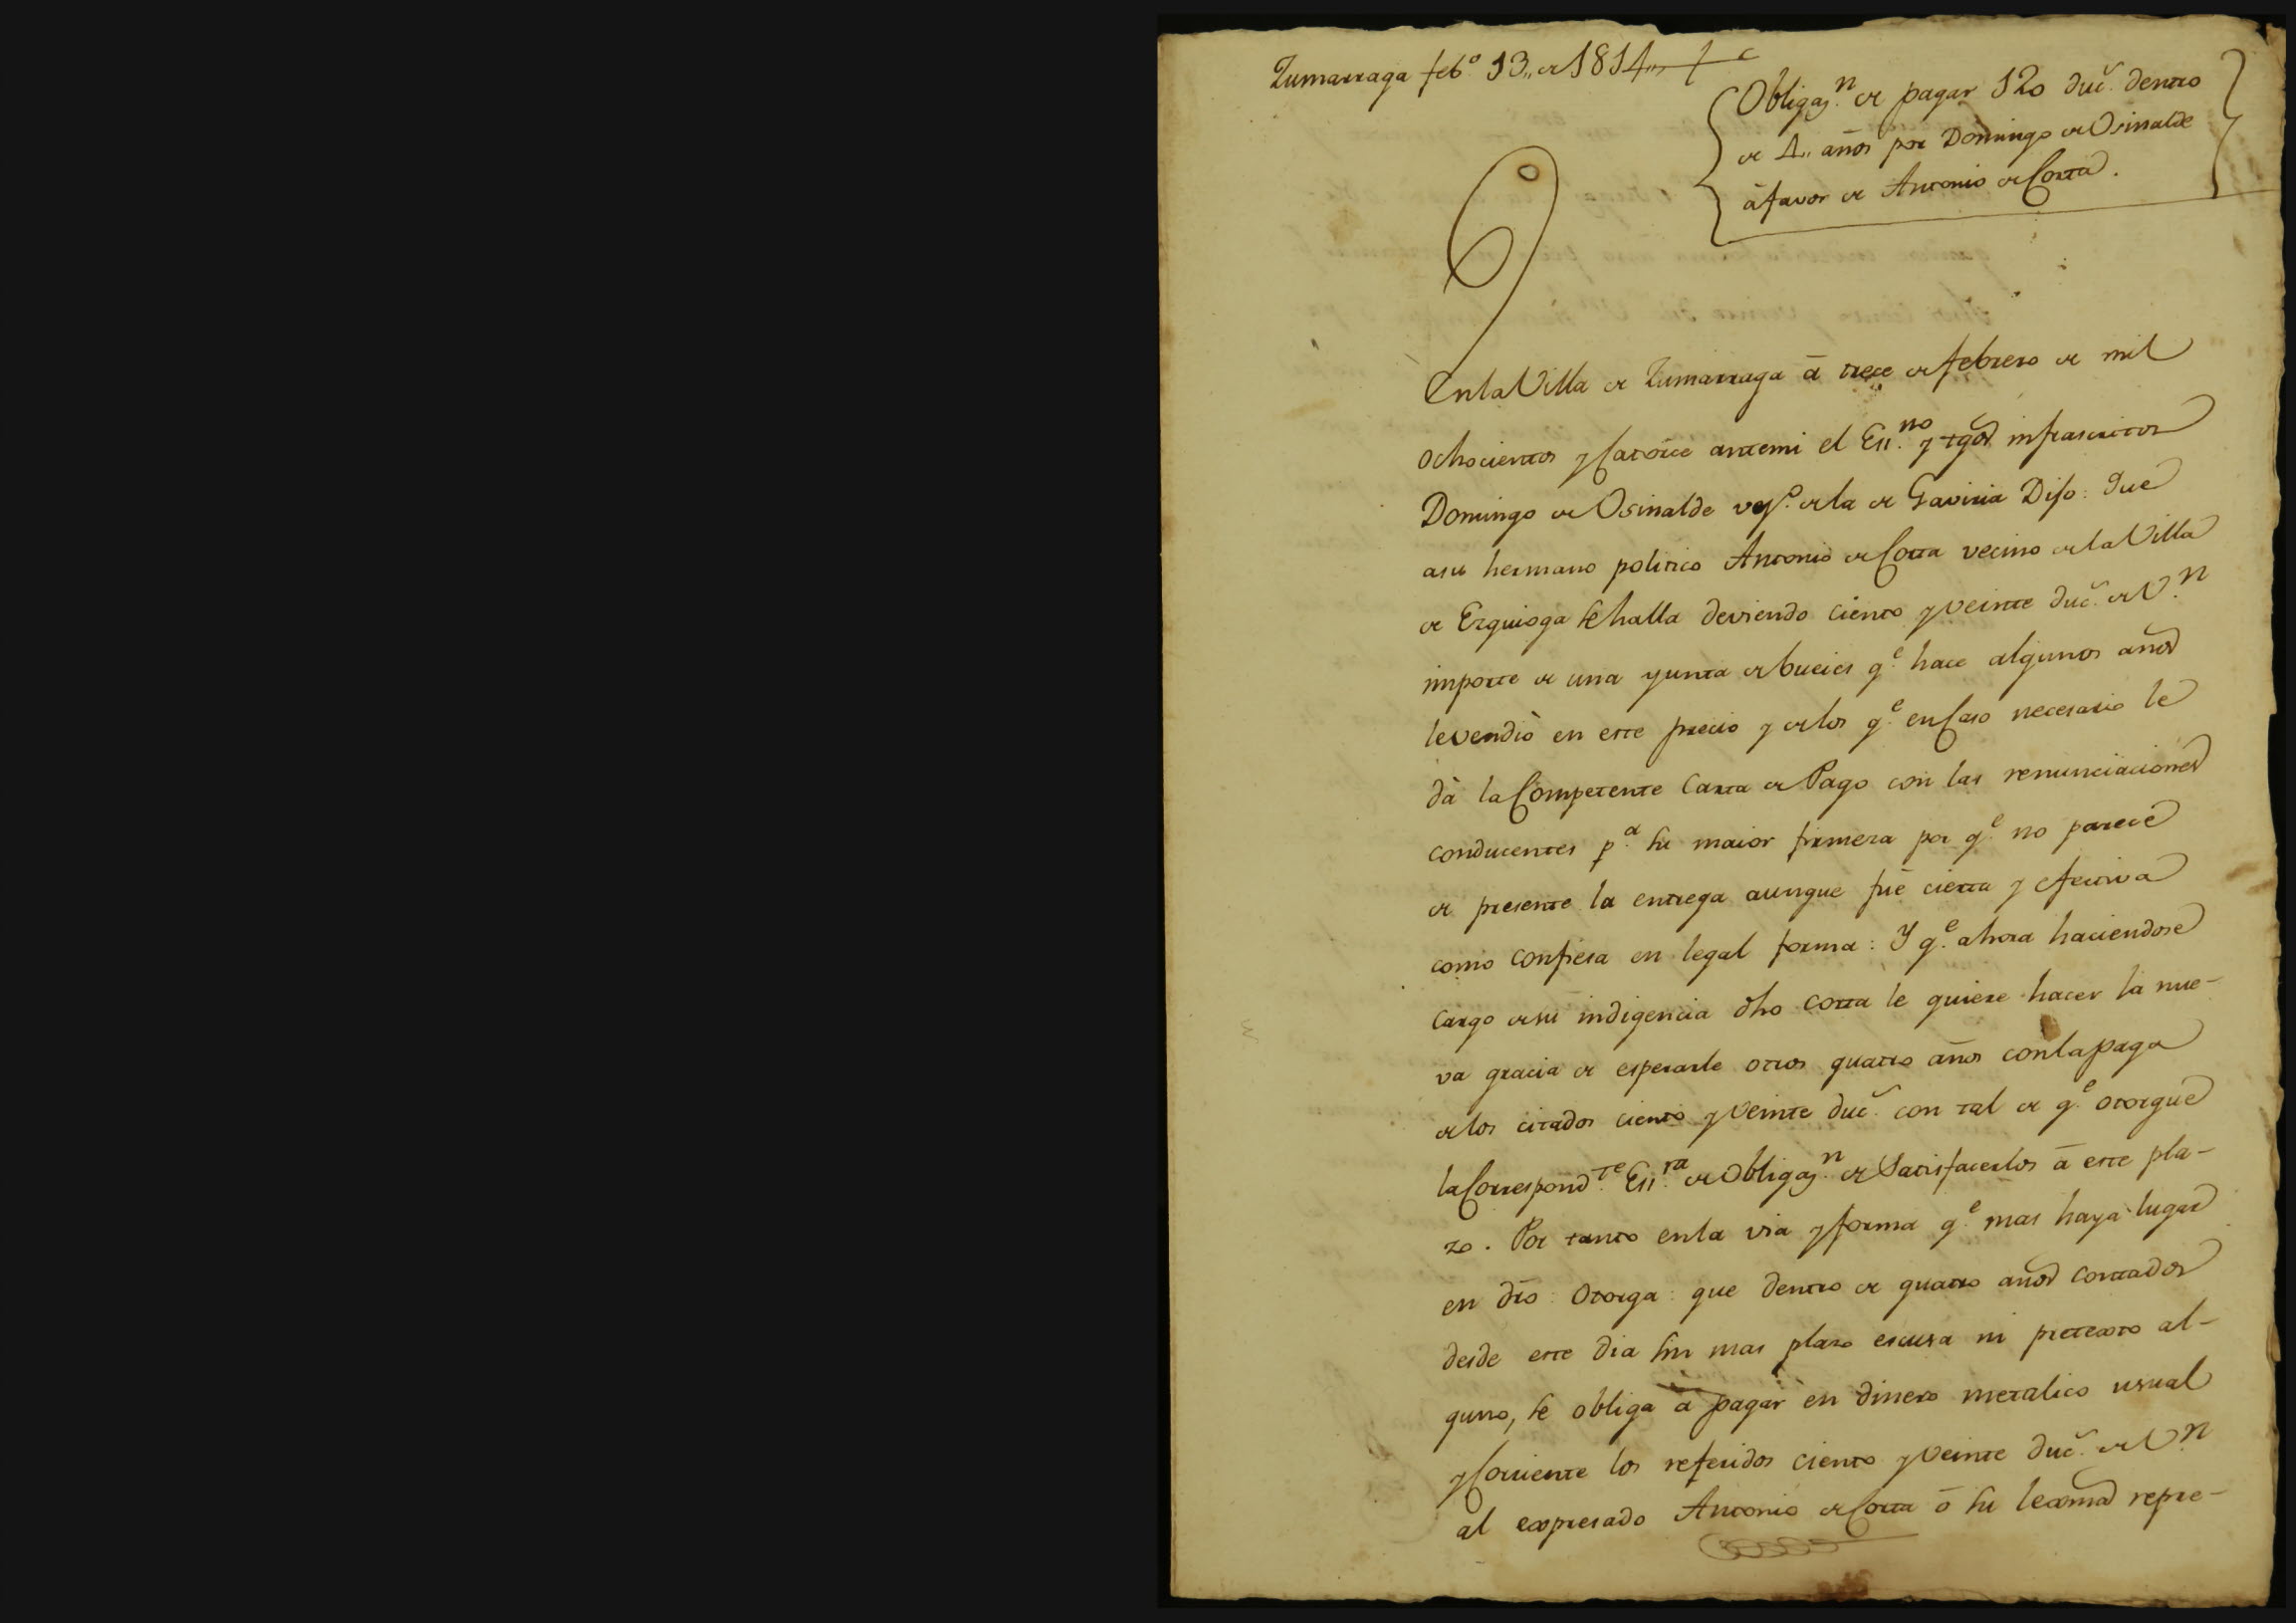 Zumarraga feb.º 13,, de 1814,,
Obligaz.n de pagar 120 duc.s dentro
de 4,, años por Domingo de Osinalde
à favor de Antonio de Cortà.
En la Villa de Zumarraga â trece de febrero de mil
ochocientos y Catorce antemi el Ess.no y tgos infrascritos
Domingo de Osinalde vez.º de la de Gaviria Dijo: Que
asu hermano politico Antonio de Corta vecino de la Villa
de Ezquioga se halla deviendo ciento y veinte duc.s de V.n
importe de una yunta de bueies q.e hace algunos años
levendiò en este precio y de los q.e en Caso necesario le
dà la Competente Carta de Pago con las renunciaciones
conducentes p.a su maior firmeza por q.e no parece
de presente la entrega aunque fuê cierta y efectiva
como confiesa en legal forma: Y q.e ahora haciendose
cargo de su indigencia dho Corta le quiere hacer la nue-
va gracia de esperarle otros quatro años con la paga
de los citados ciento y veinte duc.s con tal de q.e otorgue
la Correspond.te Ess.ra de Obligaz.n de Satisfacerlos â este pla-
zo. Por tanto en la via y forma q.e mas haya lugar
en dro: Otorga: que dentro de quatro años contados
desde este dia sin mas plazo escusa ni pretexto al-
guno, se obliga â pagar en dinero metalico usual
y Corriente los referidos ciento y veinte duc.s de V.n
al expresado Antonio de Corta ô su lexma repre-